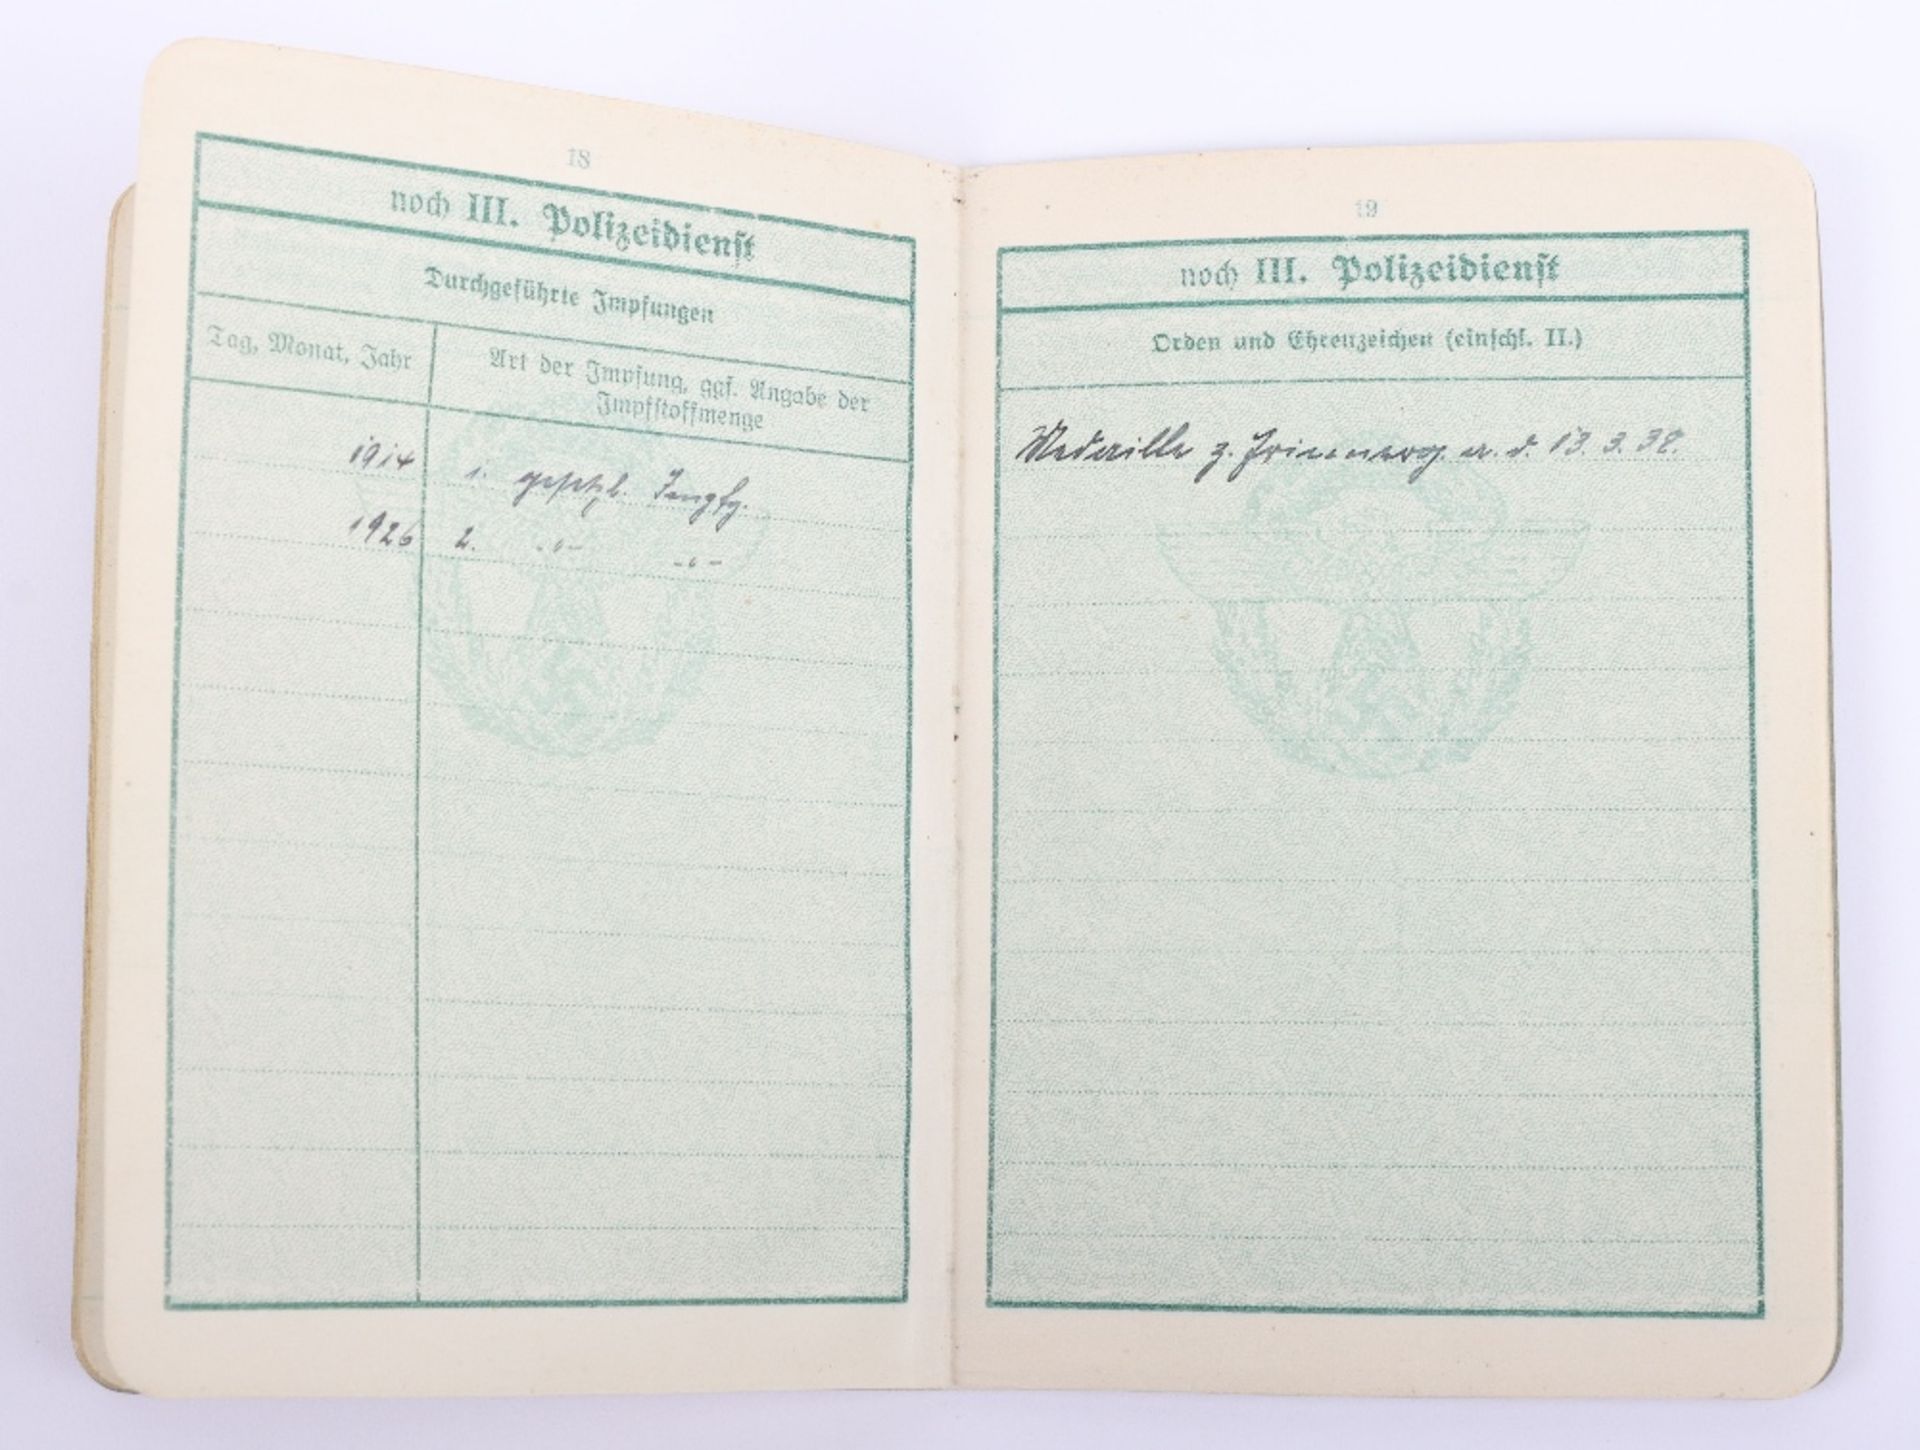 18
noch III. Polizeidienst
Durchgeführte Impfungen
Tag, Monat, Jahr
Art der Impfung, ggf. Angabe der
Impfstoffmenge
1914 1. gesetzl. Impfg.
1926 2. -"- -"-
19
noch III. Polizeidienst
Orden und Ehrenzeichen (einschl. II.)
Medaille z. Erinnerg. a. d. 13. 3. 38.